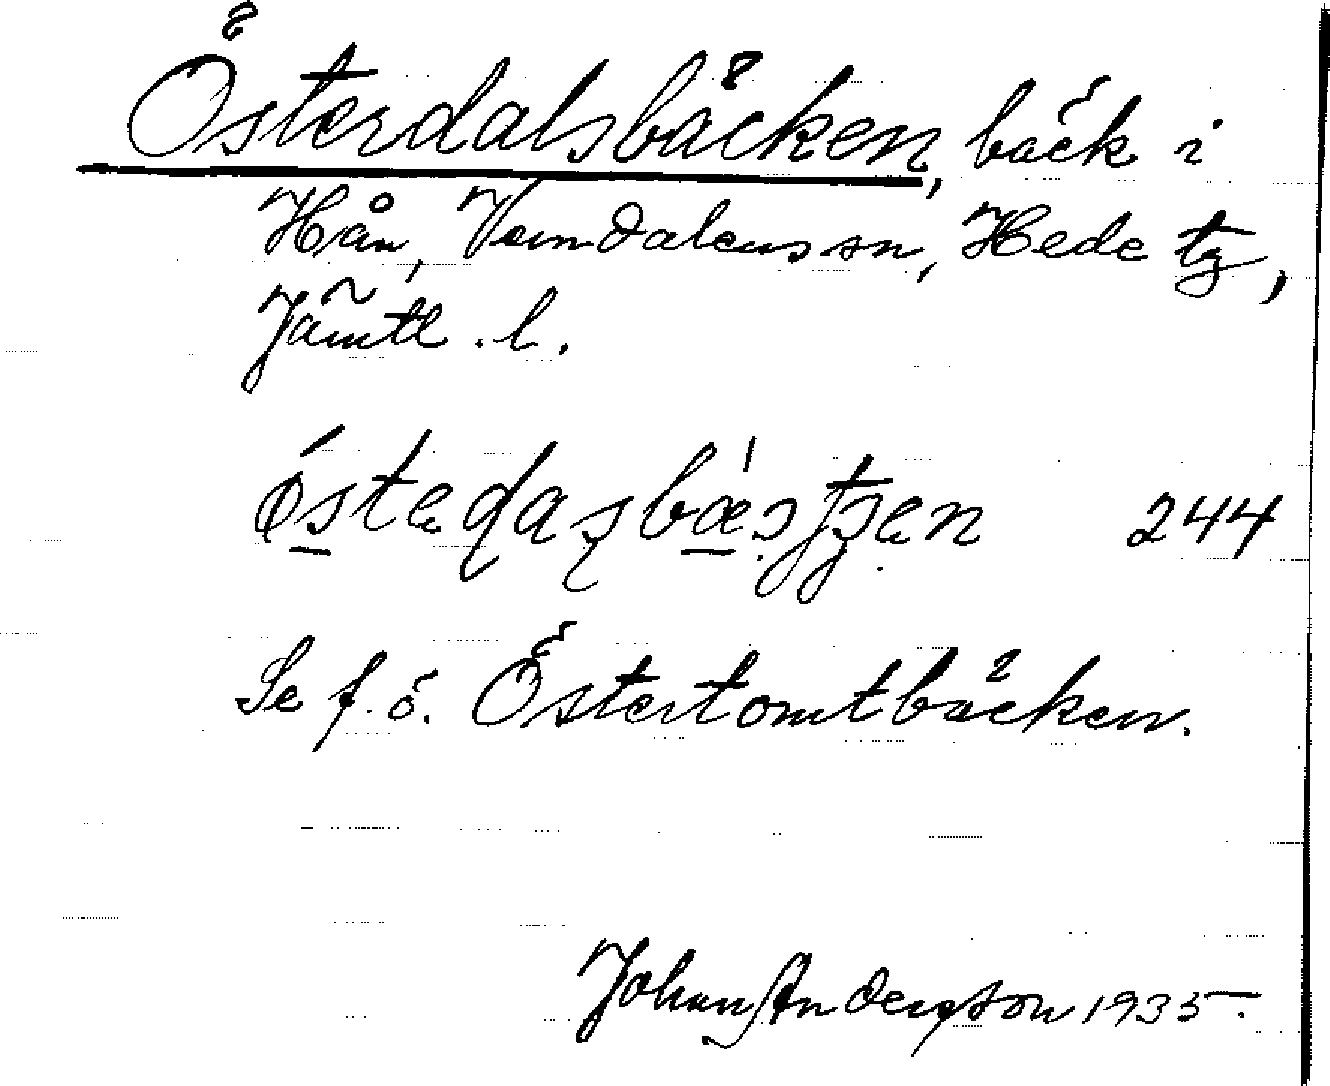 Österdalsbäcken, bäck i
Hån, Vemdalens sn, Hede tg,
Jämtl. l.
244
Se f. ö. Östertomtbäcken.
Johan Andersson 1935.